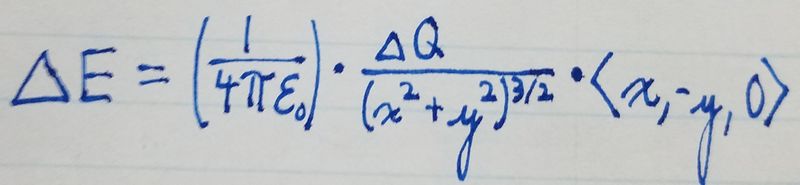 ΔE = (1/4πε₀) · ΔQ/(x²+y²)^3/2 · ⟨x,-y,0⟩